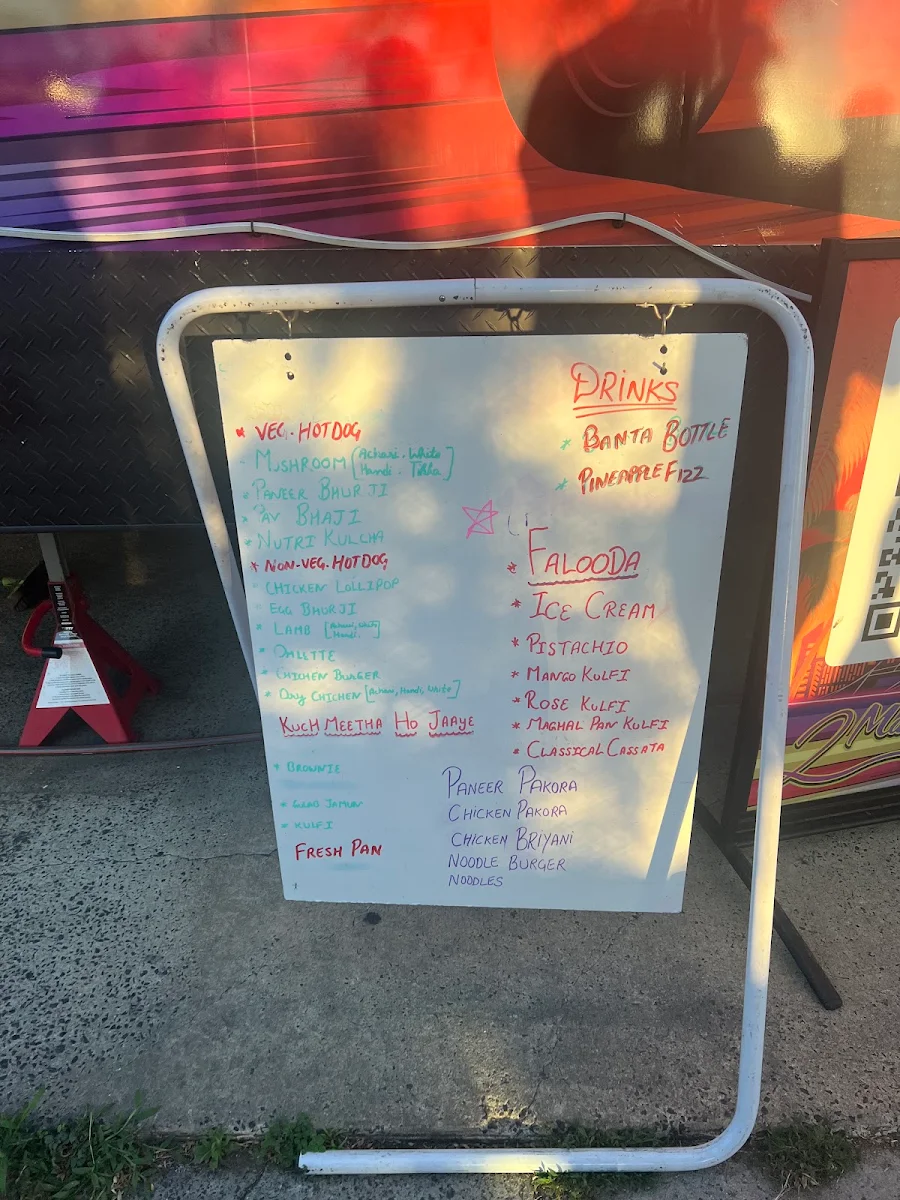 * VEG. HOTDOG
- MUSHROOM [Achari. White
Handi. Tikka]
* PANEER BHURJI
* PAV BHAJI
* NUTRI KULCHA
* NON-VEG. HOTDOG
CHICKEN LOLLIPOP
EGG BHURJI
* LAMB [Achari, White
Handi.]
* OMLETTE
* CHICKEN BURGER
* Dry CHICKEN [Achari, Handi, White]
KUCH MEETHA HO JAAYE
* BROWNIE
* GULAB JAMUN
* KULFI
FRESH PAN
DRINKS
* BANTA BOTTLE
* PINEAPPLE FIZZ
* FALOODA
* ICE CREAM
* PISTACHIO
* MANGO KULFI
* ROSE KULFI
* MAGHAL PAN KULFI
* CLASSICAL CASSATA
PANEER PAKORA
CHICKEN PAKORA
CHICKEN BRIYANI
NOODLE BURGER
NOODLES